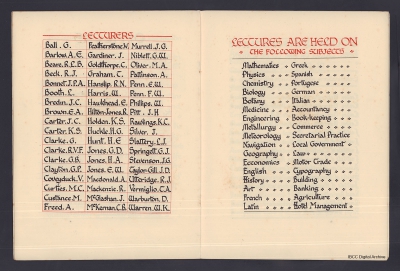 LECTURERS
Ball. G. Featherstone.W. Murrell. J.G.
Barlow. A.E. Gardiner. J. Niblett. G.W.
Beare. R.L.B. Goldthorpe. C. Oliver. M.A.
Beck. R.J. Graham. T. Pattinson. A.
Bonnet. J.P.A. Hanslip. R.N. Penn. E.W.
Booth. L. Harris. W. Penn. F.W.
Bredin. J.C. Hawkhead. E. Phillips. W.
Brown. E.A. Hilton-Jones. R. Pitt. J.H
Carter. J.C. Holden. K.S. Rawlings. R.C.
Carter. K.S. Huckle. H.G. Silver. J.
Clarke. G. Hunt. H.E Slattery. C.J.
Clarke. R.V.F. Jones. G.D. Springett. G.J.
Clarke. G.B. Jones. H.A. Stevenson. J.G.
Clayton. G.P. Jones. E.W. Taylor-Gill. J.D.
Coveyduck. V. Macdonald. A. Utteridge. R.J.
Curties. M.C. Mackenzie. R. Vermiglio. T.A.
Custance. M. McGlashan. J. Warburton. D.
Freed. A. McKernan. C.B. Warren. W.K.
LECTURES ARE HELD ON
THE FOLLOWING SUBJECTS
Mathematics Greek
Physics Spanish
Chemistry Portugese
Biology German
Botany Italian
Medicine Accountancy
Engineering Book-keeping
Metallurgy Commerce
Meteorology Secretarial Practice
Navigation Local Government
Geography Law
Economics Motor Trade
English Typography
History Building
Art Banking
French Agriculture
Latin Hotel Management
IBCC Digital Archive